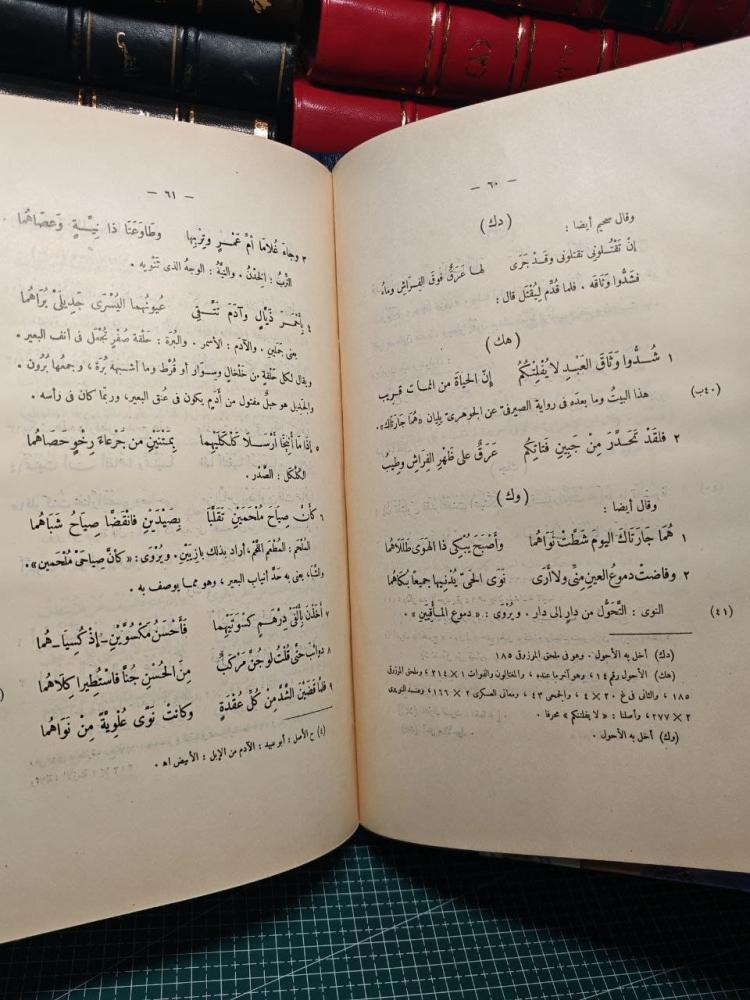 — ٦٠ —
وقال سحيم أيضا : (دك)
إنْ تَقْتُلُونى تقتلونى وقَدْ جَرَى لها عَرَقٌ فوقَ الفِراشِ وماءُ
فشدُّوا وَثاقَه . فلما قُدِّم لِيُقْتَل قال :
(هك)
١ شُدُّوا وَثَاقَ العَبْدِ لا يُفْلِتْكُمُ إنّ الحياةَ من الممات قريب
هذا البيتُ وما بعدَه فى رواية الصيرفىّ عن الجوهرىّ يليان «هُمَا جَارَتَاكَ».
(٤٠ب)
٢ فلقَدْ تَحَدَّرَ مِنْ جَبِينِ فَتَاتِكُم عَرَقٌ على ظَهْرِ الفِراشِ وطِيبُ
وقال أيضا : (وك)
١ هُمَا جَارَتَاكَ اليومَ شَطَّتْ نَوَاهُما وأصْبَحَ يُبْكِى ذا الهَوَى طَلَلَاهُما
٢ وفاضتْ دموعُ العينِ مِنِّى ولا أَرَى نَوَى الحَىِّ يُدْنِيها جميعاً بُكَاهُما
النوى : التَّحَوُّل من دارٍ إلى دار . ويُرْوَى : « دموع المأقِيَيْنِ » .
(٤١)
(دك) أخل به الأحول . وهو فى ملحق المرزوق ١٨٥
(هك) الأحول رقم ١٤، وهو آخر ما عنده ، والمغتالون والفوات ١ × ٢١٤ ، وملحق المرزوق
١٨٥ ، والثانى فى غ ٢٠ × ٤ ، والجمحى ٤٣ ، ومعانى العسكرى ٢ × ١٦٦ ، وعند التبريزى
٢ × ٢٧٧ ، وأصلنا : « لا يفلتنكم » محرفا .
(وك) أخل به الأحول .
— ٦١ —
٣ وجاءَ غُلامَا أمِّ عَمْرٍو وتِرْبِها وطَاوَعَتَا ذا نِيَّةٍ وَعَصَاهُما .
التِّرْبُ : الخِدْنُ . والنِّيَّةُ : الوجهُ الذى تَنْوِيه .
٤ بِأَحْمَرَ ذَيَّالٍ وآدَمَ تَتَّقِى عيونُهما اليُسْرَى جَدِيلَىْ بُرَاهُما
يعنى جَمَلين . والآدَم : الأسمر . والبُرَة : حَلْقة صُفْرٍ تُجْعَل فى أنف البعير .
ويقال لكل حَلْقةٍ من خَلْخالٍ وسِوَارٍ أو قُرْط وما أشبهه بُرَة ، وجمعها بُرُون .
والجَدِيل هو حبلٌ مفتول من أَدَمٍ يكون فى عُنق البعير ، وربّما كان فى رأسه .
٥ إذَا مَا أُنِيخَا أرْسَلَا كَلْكَلَيْهِما بِمَتْنَيْنِ من جَرْعاءَ رِخْوٍ حَصَاهُما
الكَلْكَل : الصَّدْر .
٦ كأنّ صِيَاحَ مُلْحَمَيْنِ تَقَلَّبَا بِصَيْدَيْنِ فانقَضَّا صِيَاحُ شَبَاهُما
المُلْحَم : المُطْعَم اللَّحْمَ، أراد بذلك بازِيَيْنِ . ويُرْوَى : «كأنّ صياحَىْ مُلْحَمين» .
والشَّبَا، يعنى به حَدَّ أنياب البعير ، وهو مما يوصف به .
٧ أخَذْنَ بِأَلْفَىْ دِرْهَمٍ كسْوَتَيْهِما فَأَحْسَنُ مَكْسُوَّيْنِ ـ إذْ كُسِيَا ـ هُما
٨ دوائبَ حتّى قُلْتُ لو جُنَّ مَرْكَبٌ مِنَ الحُسْنِ جُنَّا فاسْتُطِيرَا كِلَاهُما
٩ فلمّا قَضَيْنَ الشَّدَّ مِنْ كُلِّ عُقْدَةٍ وكانتْ نَوًى عُلْوِيَّةً مِنْ نَوَاهُما
(٤) ح الأصل : أبو عبيد : الآدم من الإبل : الأبيض اه .